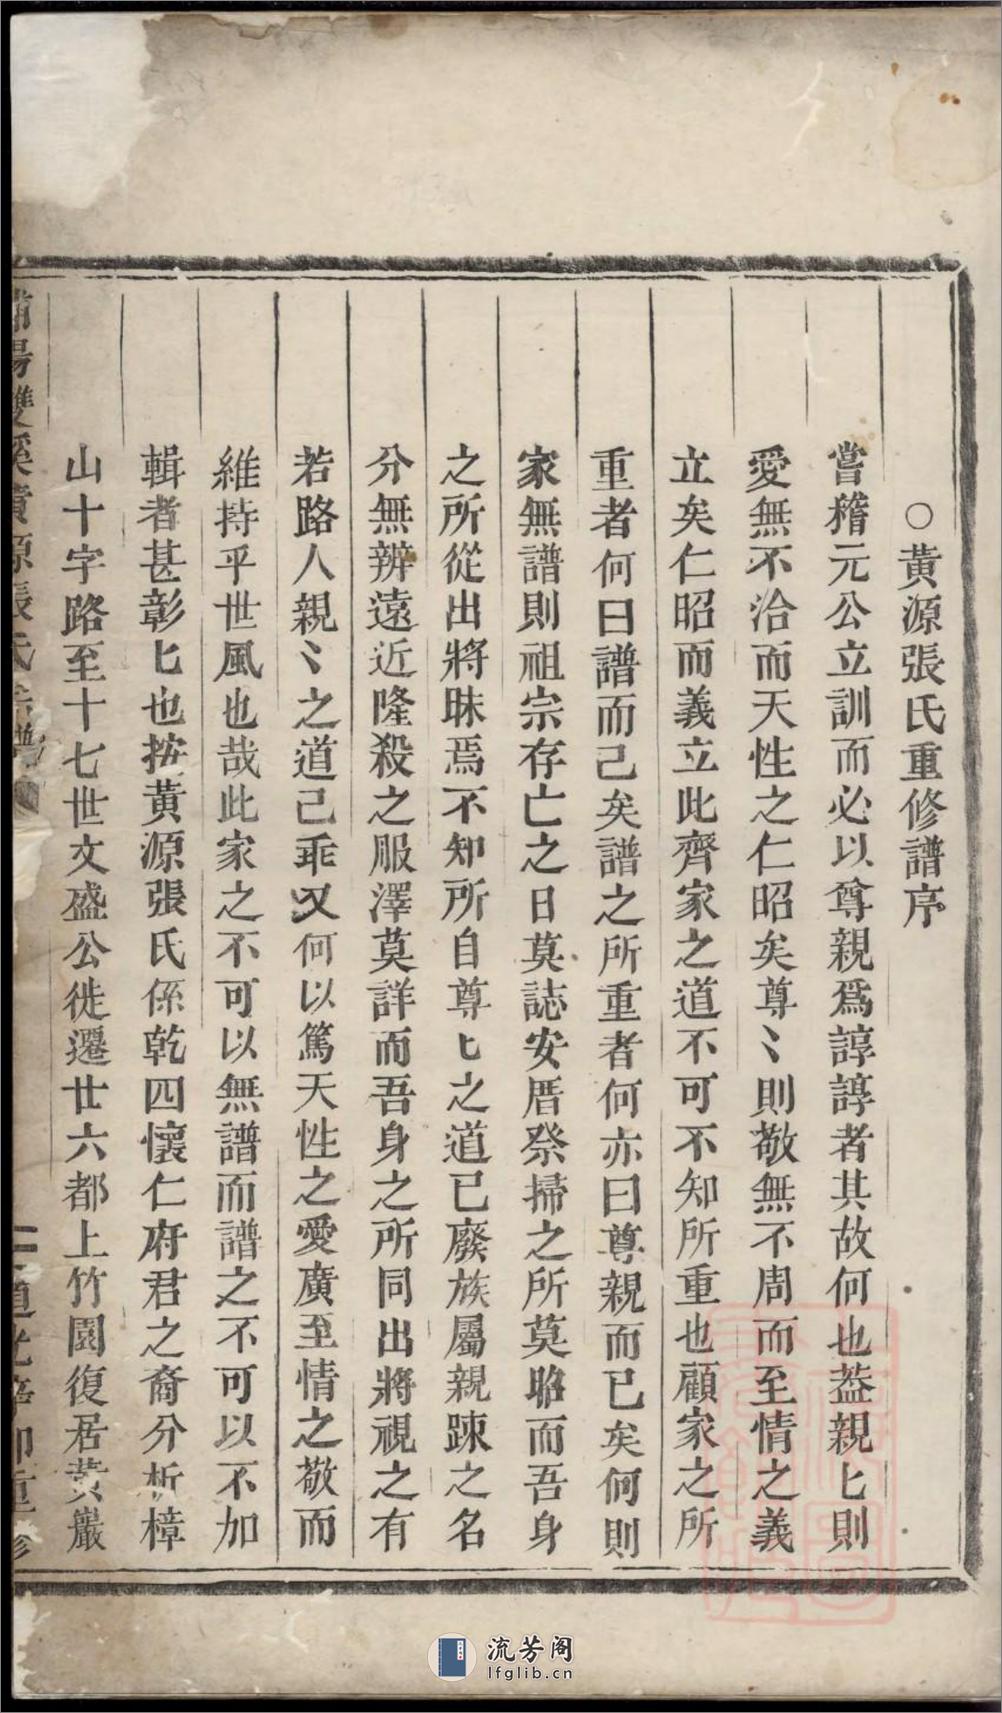 ○黃源張氏重修譜序
嘗稽元公立訓而必以尊親爲諄諄者其故何也葢親匕則
愛無不洽而天性之仁昭矣尊〻則敬無不周而至情之義
立矣仁昭而義立此齊家之道不可不知所重也顧家之所
重者何曰譜而已矣譜之所重者何亦曰尊親而已矣何則
家無譜則祖宗存亡之日莫誌安厝祭掃之所莫昭而吾身
之所從出將昧焉不知所自尊匕之道已廢族屬親踈之名
分無辨遠近隆殺之服澤莫詳而吾身之所同出將視之有
若路人親〻之道已乖又何以篤天性之愛廣至情之敬而
維持乎世風也哉此家之不可以無譜而譜之不可以不加
輯者甚彰匕也按黃源張氏係乾四懷仁府君之裔分析樟
山十字路至十七世文盛公徙遷廿六都上竹園復居黃巖
陽雙溪黃源張氏宗譜
道光辛卯重修
流芳阁
lfglib.cn